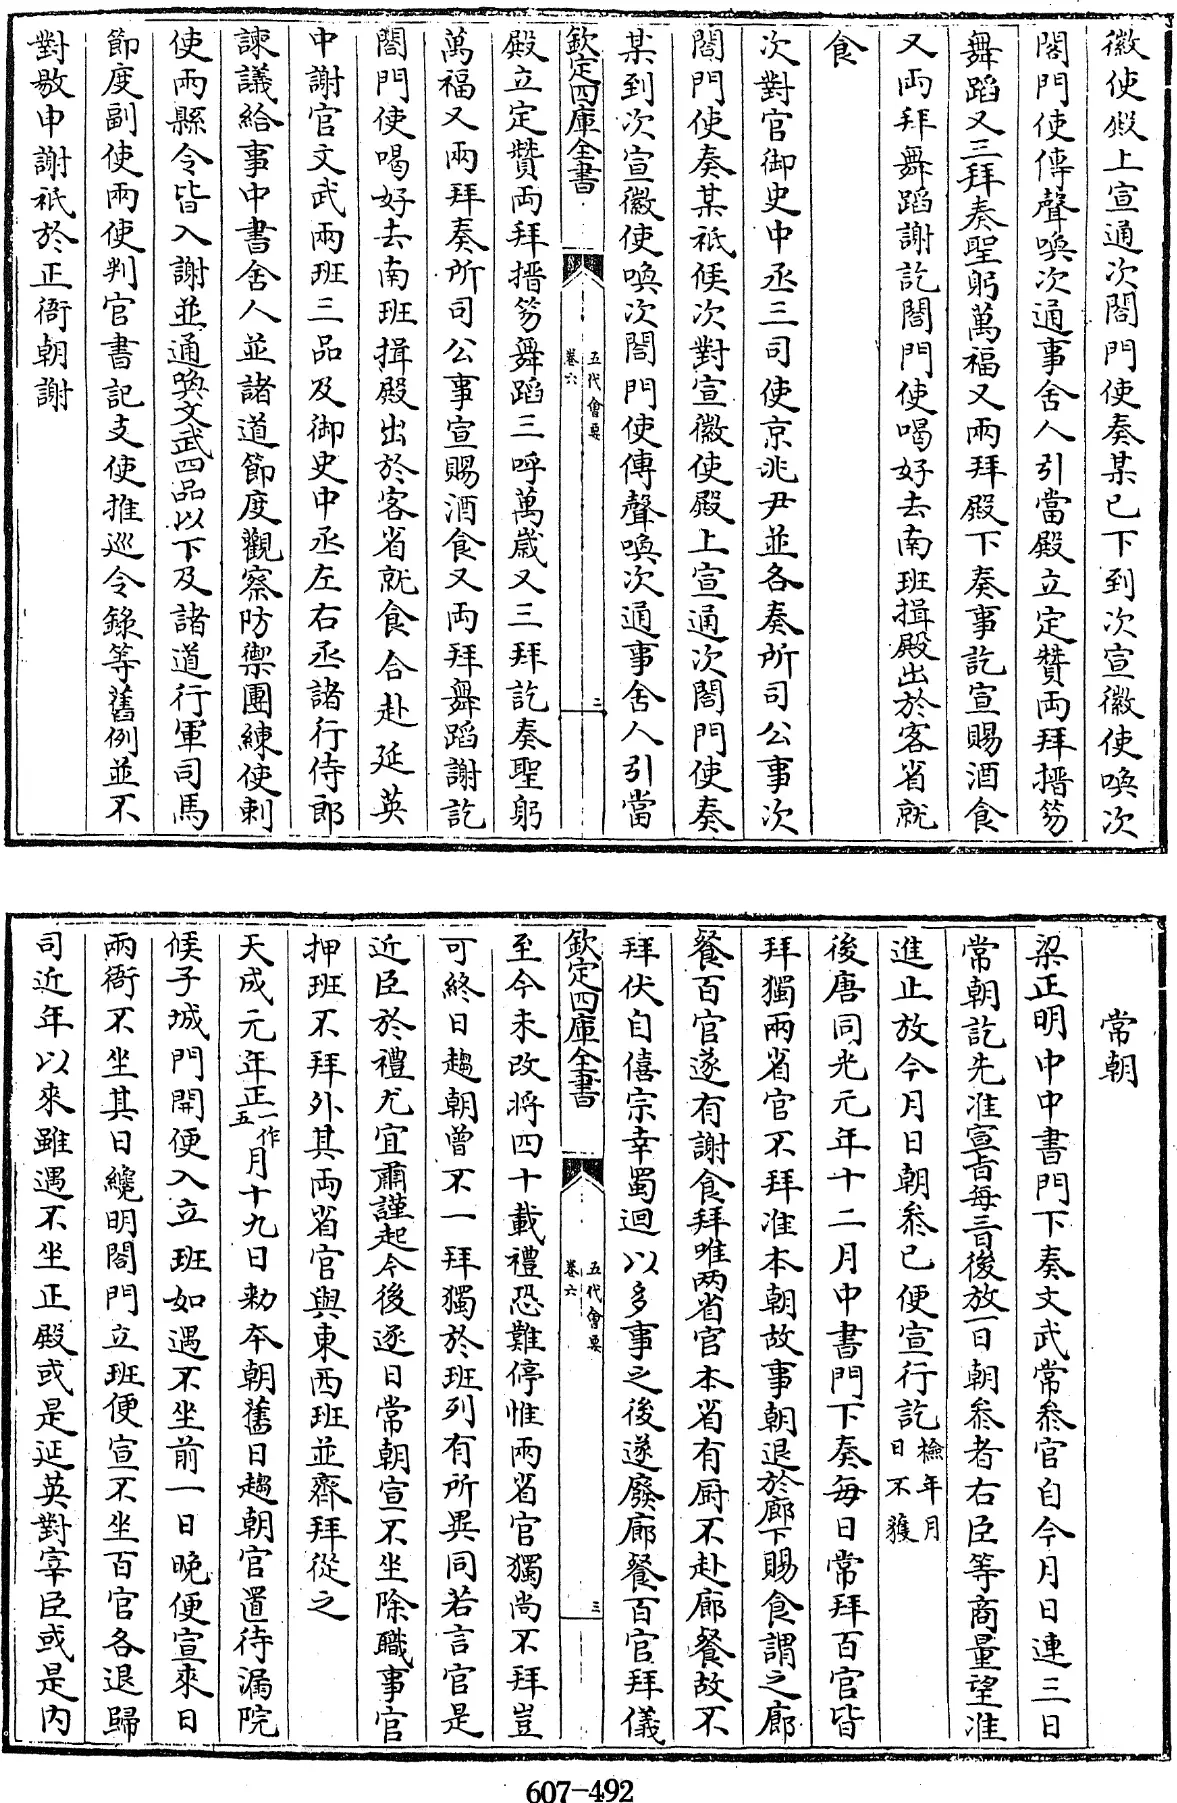 徽使殿上宣通次閤門使奏某已下到次宣徽使喚次
閤門使傳聲喚次通事舍人引當殿立定贊兩拜搢笏
舞蹈又三拜奏聖躬萬福又兩拜殿下奏事訖宣賜酒食
又兩拜舞蹈謝訖閤門使喝好去南班揖殿出於客省就
食
次對官御史中丞三司使京兆尹並各奏所司公事次
閤門使奏某祗候次對宣徽使殿上宣通次閤門使奏
某到次宣徽使喚次閤門使傳聲喚次通事舍人引當
欽定四庫全書
五代會要
卷六
三
殿立定贊兩拜搢笏舞蹈三呼萬歲又三拜訖奏聖躬
萬福又兩拜奏所司公事宣賜酒食又兩拜舞蹈謝訖
閤門使喝好去南班揖殿出於客省就食合赴延英
中謝官文武兩班三品及御史中丞左右丞諸行侍郎
諫議給事中書舍人並諸道節度觀察防禦團練使刺
使兩縣令皆入謝並通喚文武四品以下及諸道行軍司馬
節度副使兩使判官書記支使推巡令錄等舊例並不
對敭中謝祗於正衙朝謝
常朝
梁正明中中書門下奏文武常叅官自今月日連三日
常朝訖先准宣旨每三日後放一日朝叅者右臣等商量望准
進止放今月日朝叅已便宣行訖檢年月日不獲
後唐同光元年十二月中書門下奏每日常拜百官皆
拜獨兩省官不拜准本朝故事朝退於廊下賜食謂之廊
餐百官遂有謝食拜唯兩省官本省有厨不赴廊餐故不
拜伏自僖宗幸蜀迴以多事之後遂廢廊餐百官拜儀
欽定四庫全書
五代會要
卷六
三
至今未改將四十載禮恐難停惟兩省官獨尚不拜豈
可終日趨朝曾不一拜獨於班列有所異同若言官是
近臣於禮尤宜肅謹起今後逐日常朝宣不坐除職事官
押班不拜外其兩省官與東西班並齊拜從之
天成元年正一作五月十九日勑本朝舊日趨朝官置待漏院
候子城門開便入立班如遇不坐前一日晚便宣來日
兩衙不坐其日纔明閤門立班便宣不坐百官各退歸
司近年以來雖遇不坐正殿或是延英對宰臣或是內
607-492